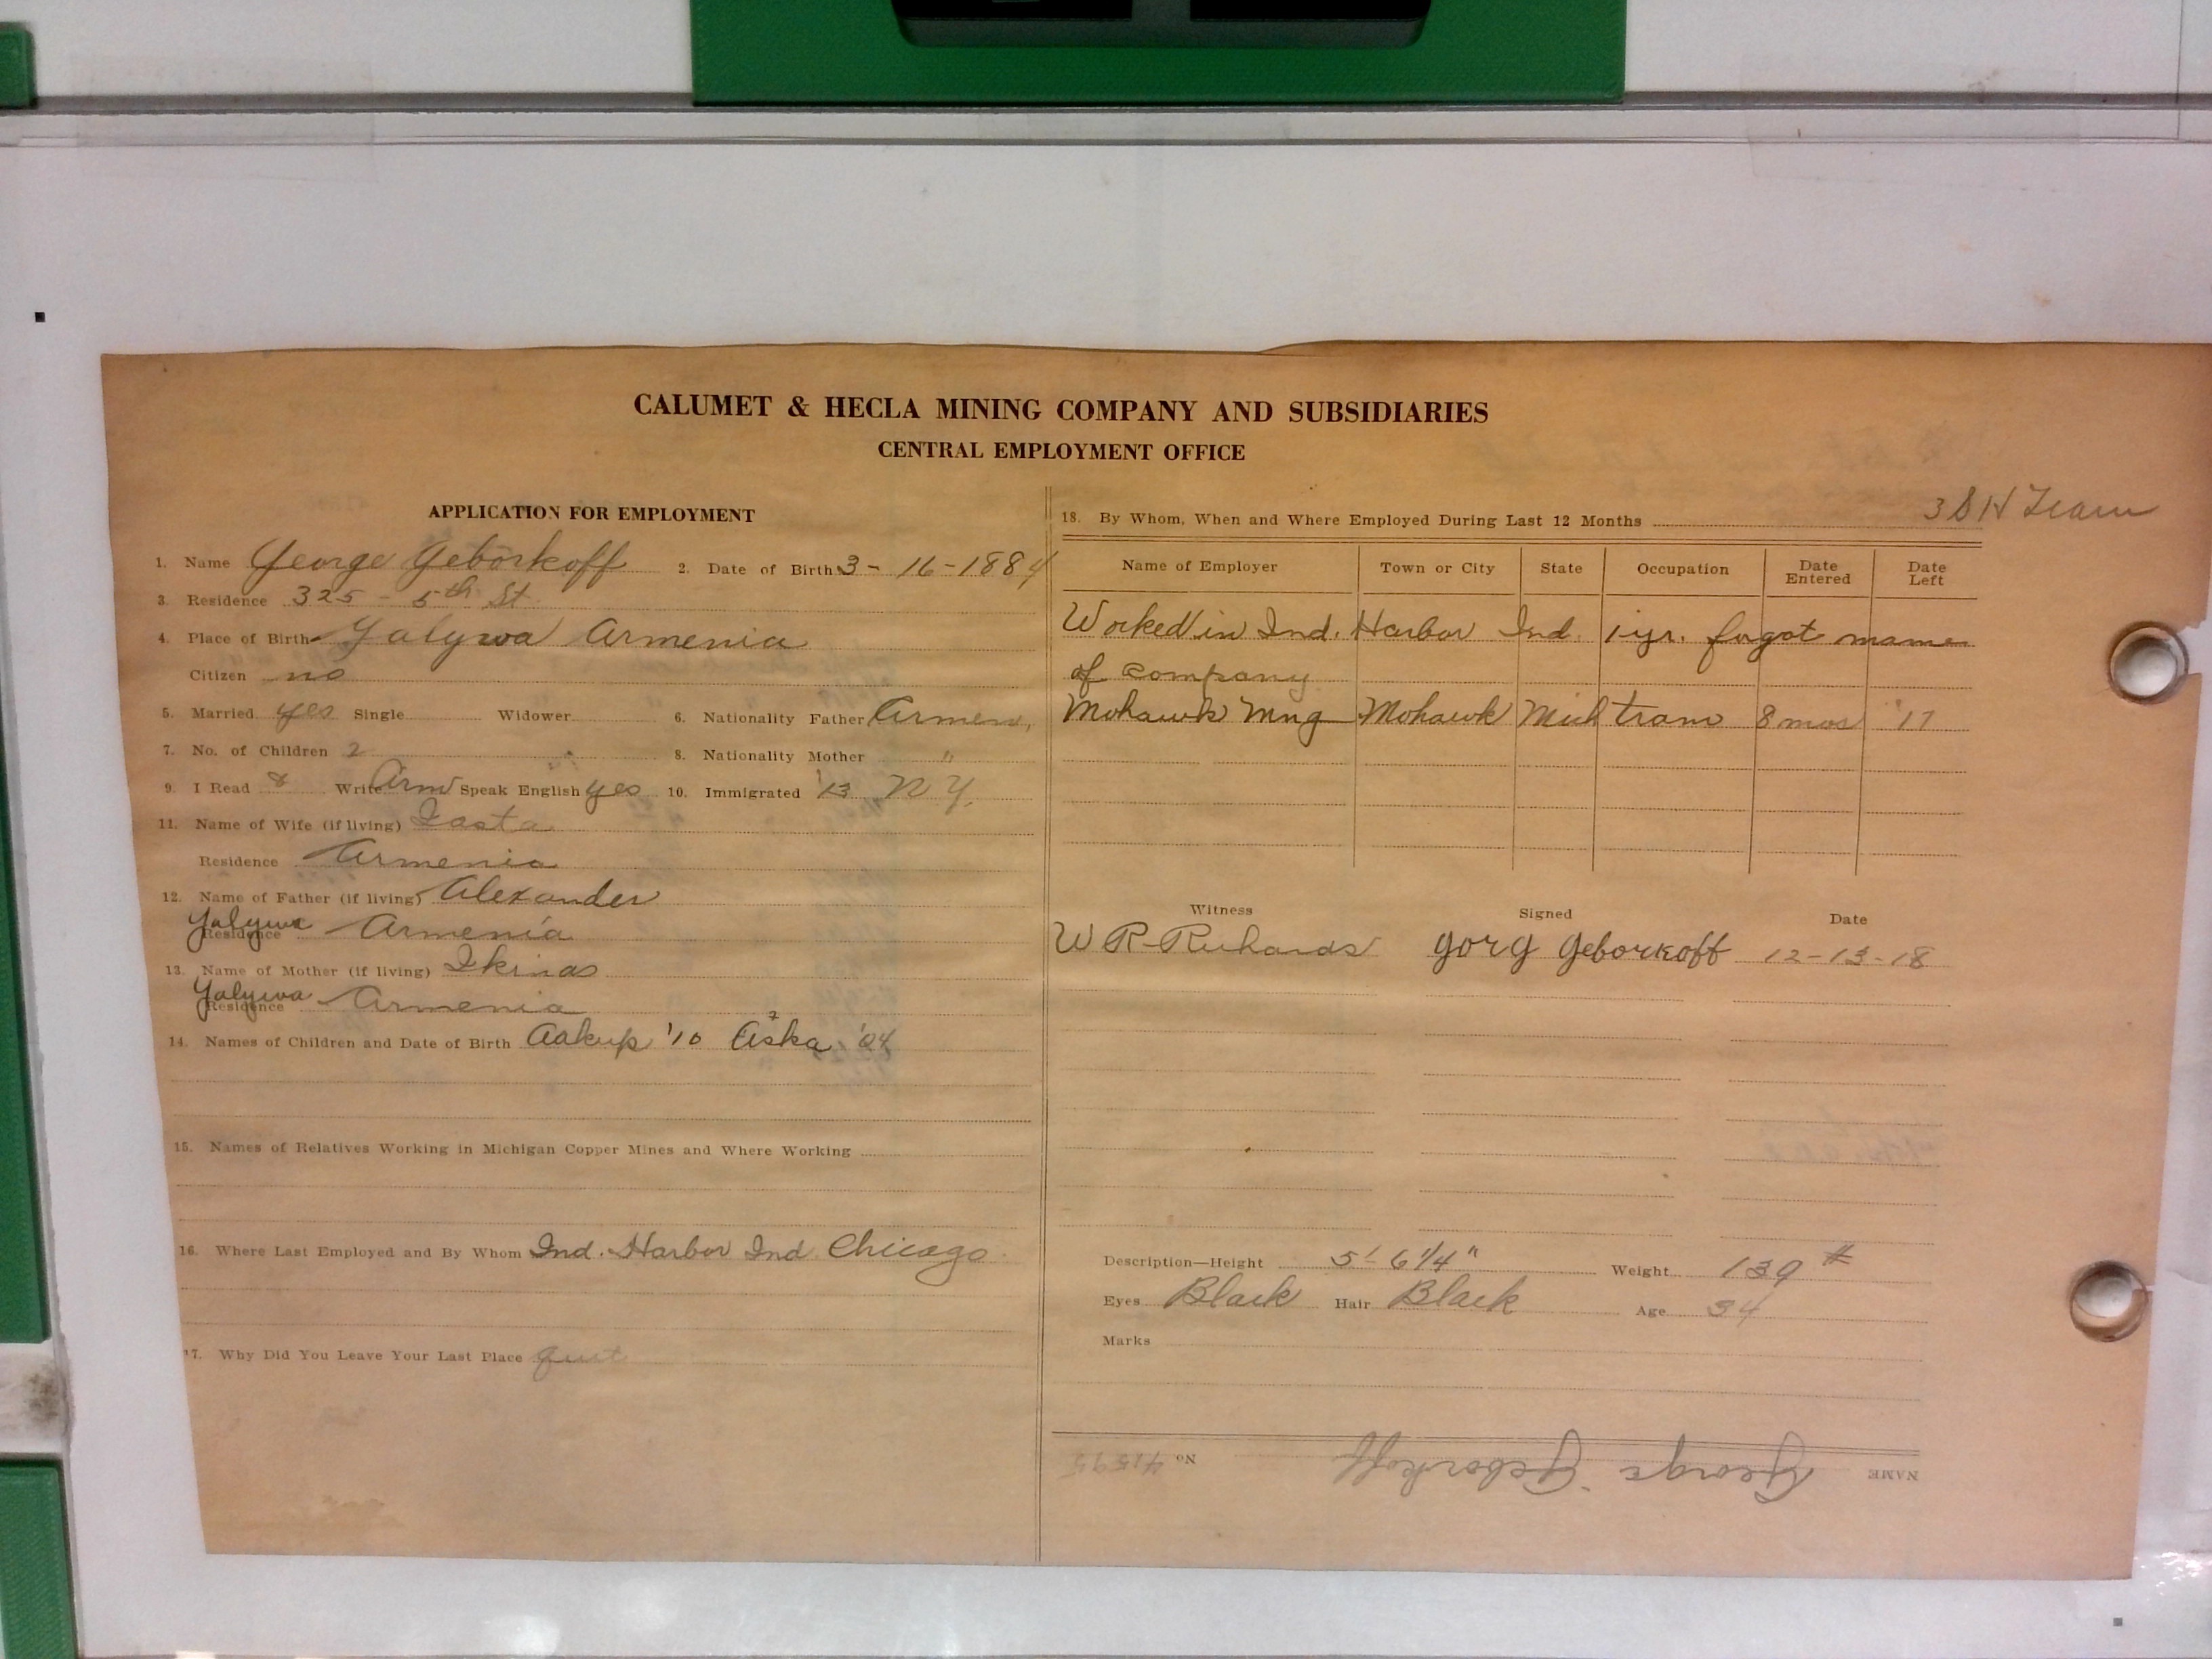 CALUMET & HECLA MINING COMPANY AND SUBSIDIARIES
CENTRAL EMPLOYMENT OFFICE
APPLICATION FOR EMPLOYMENT
1. Name George Geborkoff 2. Date of Birth 3 - 16 - 1884
3. Residence 325 - 5th St
4. Place of Birth Yalywa Armenia
Citizen no
5. Married yes Single Widower 6. Nationality Father Armen,
7. No. of Children 2 8. Nationality Mother "
9. I Read & Write Arm Speak English yes 10. Immigrated '13 N Y.
11. Name of Wife (if living) Iasta
Residence Armenia
12. Name of Father (if living) Alexander
Residence Yalywa Armenia
13. Name of Mother (if living) Ikinas
Residence Yalywa Armenia
14. Names of Children and Date of Birth Aakup '10 Aska '04
15. Names of Relatives Working in Michigan Copper Mines and Where Working
16. Where Last Employed and By Whom Ind. Harbor Ind Chicago
17. Why Did You Leave Your Last Place quit
18. By Whom, When and Where Employed During Last 12 Months
Name of Employer Town or City State Occupation Date Entered Date Left
Worked in Ind. Harbor Ind. 1 yr. forgot name
of company
Mohawk Mng Mohawk Mich tram 8 mos '17
Witness Signed Date
W R Richards gorg geborkoff 12-13-18
Description—Height 5' 6 1/4" Weight 139 #
Eyes Black Hair Black Age 34
Marks
NAME George Geborkoff No. 41595